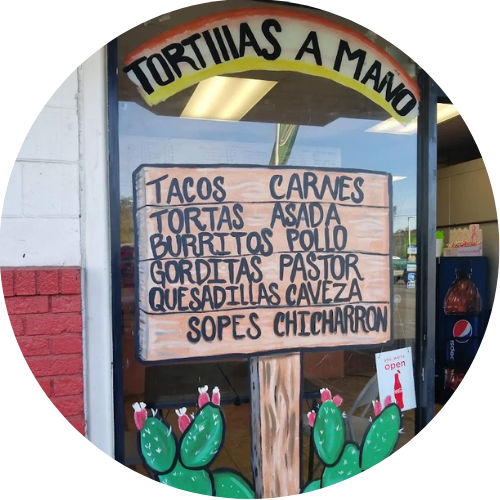 TORTIllAS A MANO
TACOS CARNES
TORTAS ASADA
BURRITOS POLLO
GORDITAS PASTOR
QUESADILLAS CAVEZA
SOPES CHICHARRON
open
pepsi